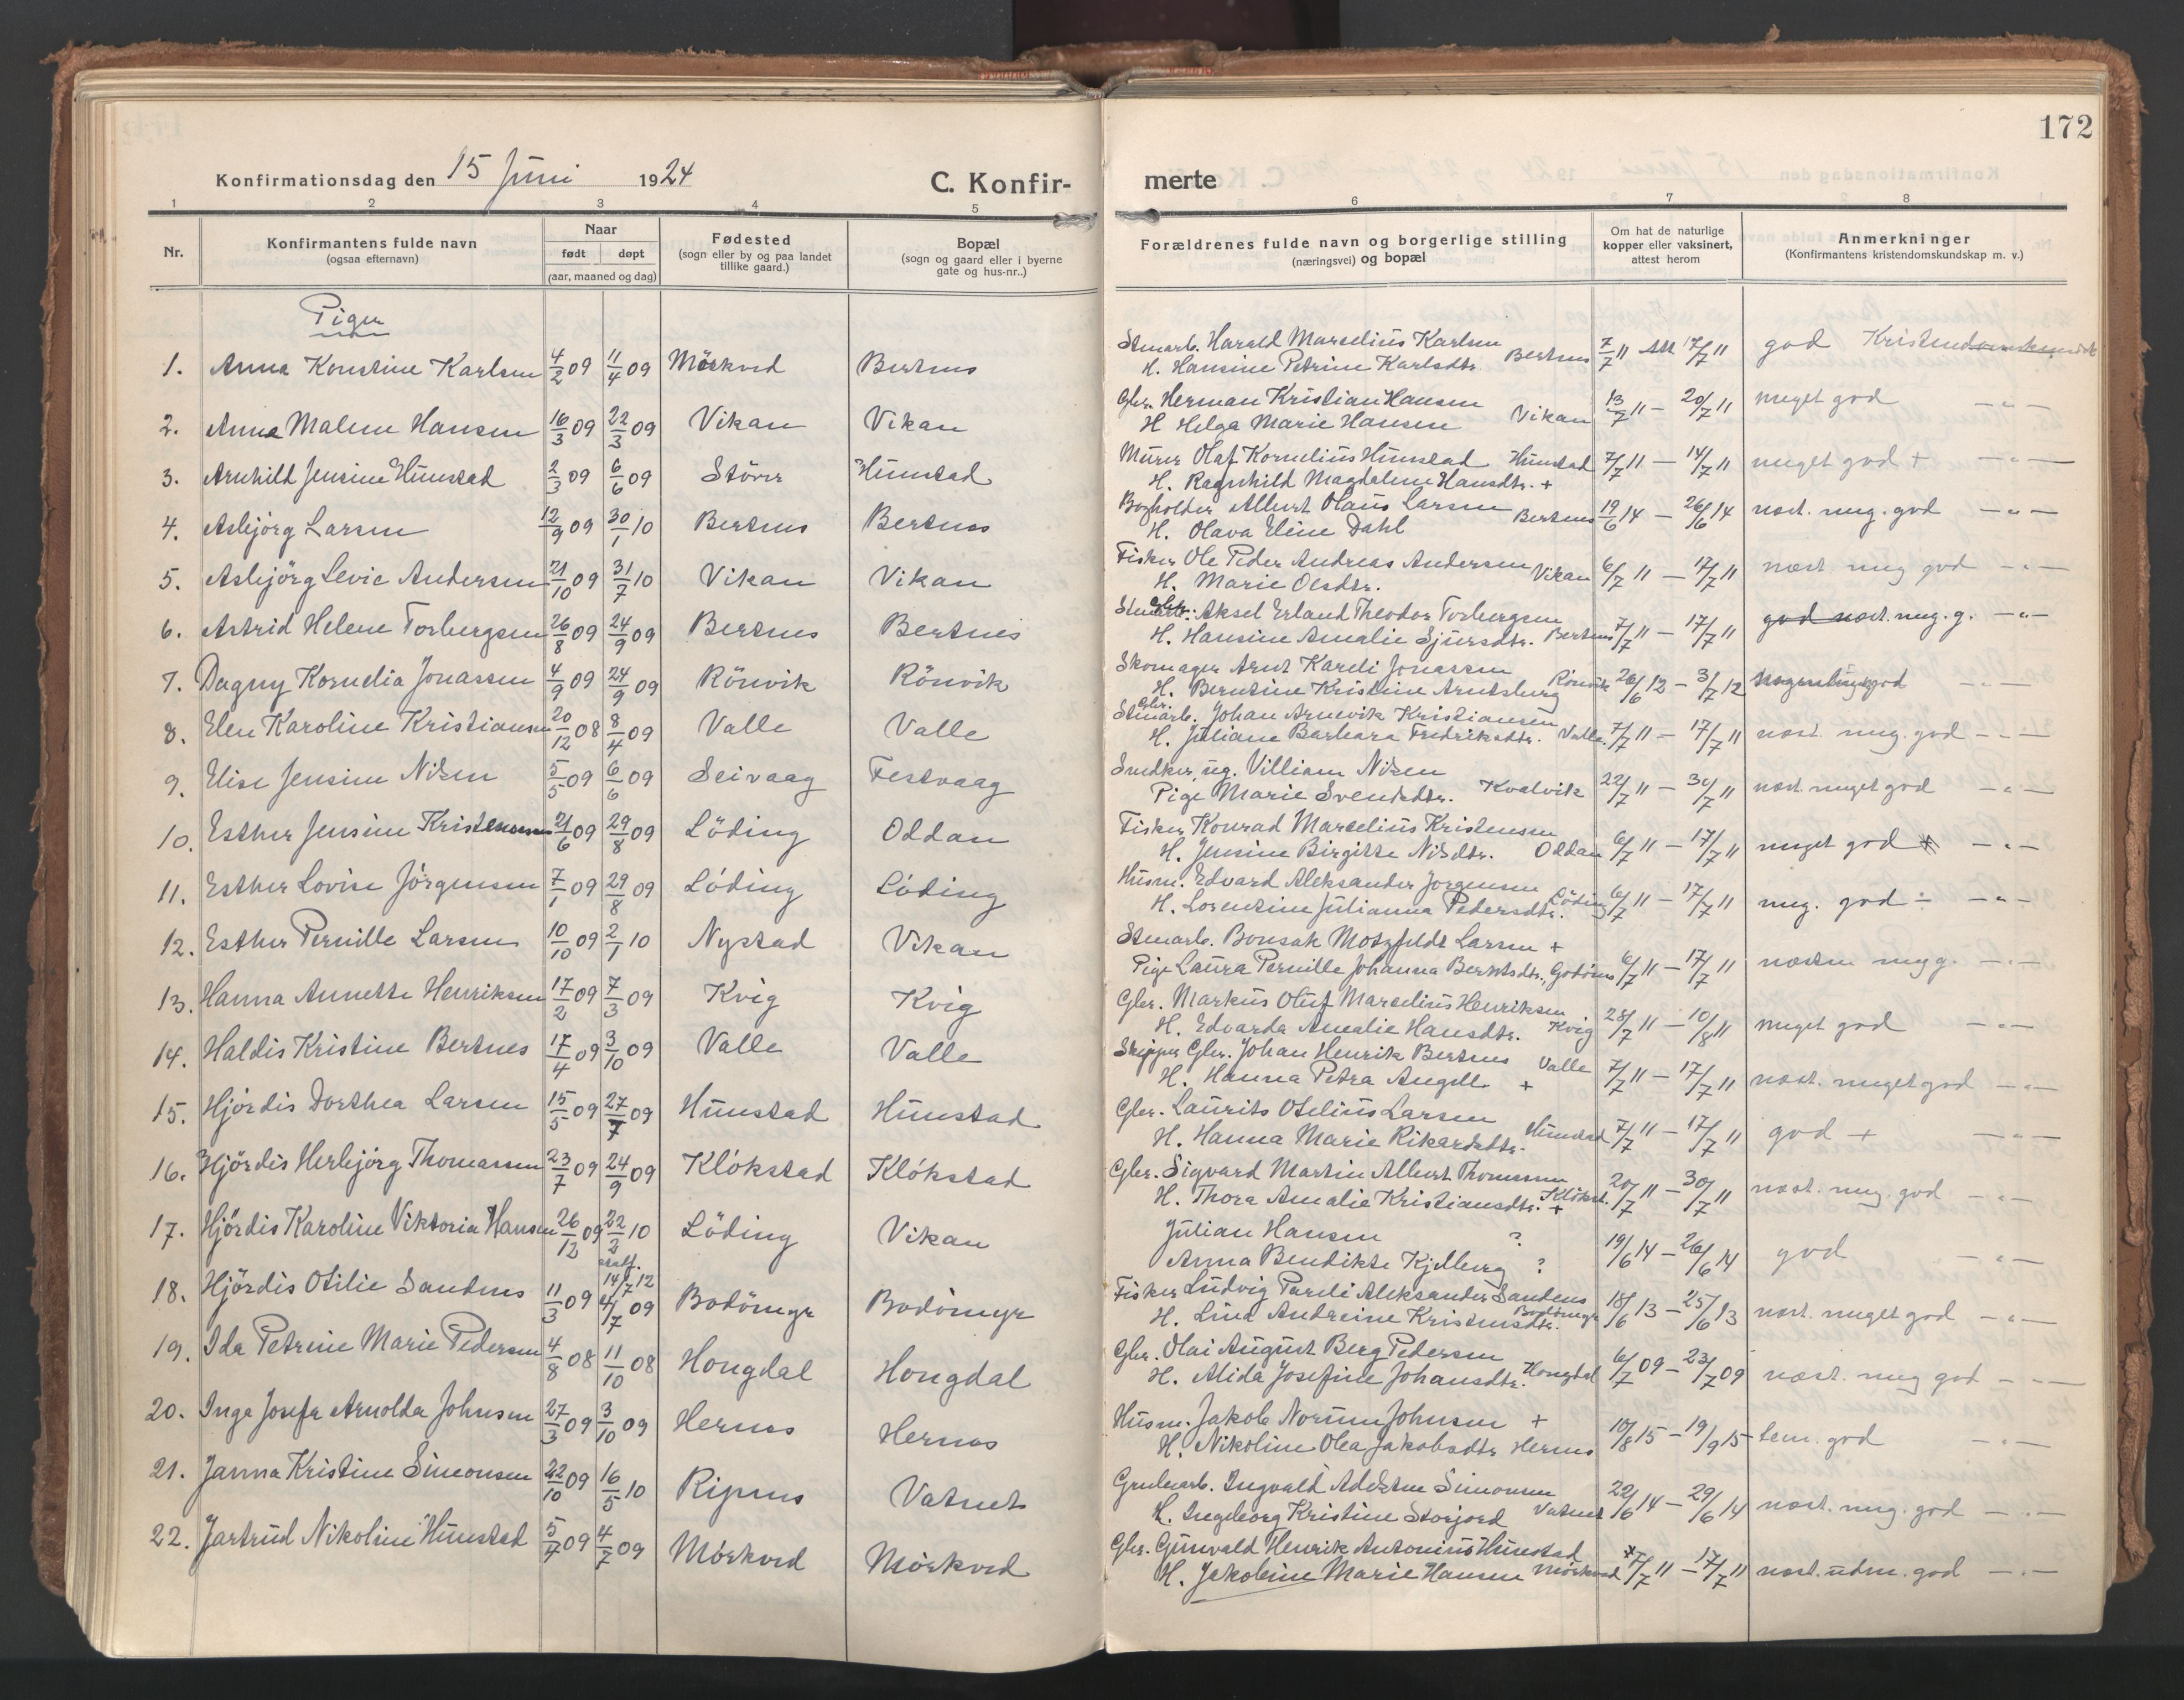 172
Konfirmationsdag den 15 Juni 1924
C. Konfir-
merte
1 2 3 4 5 6 7 8
Nr.
Konfirmantens fulde navn
(ogsaa efternavn)
Naar
født døpt
(aar, maaned og dag)
Fødested
(sogn eller by og paa landet
tillike gaard.)
Bopæl
(sogn og gaard eller i byerne
gate og hus-nr..)
Forældrenes fulde navn og borgerlige stilling
(næringsvei) og bopæl
Om hat de naturlige
kopper eller vaksinert,
attest herom
Anmerkninger
(Konfirmantens kristendomskundskap m. v.)
Piger
1. Anna Konstine Karlsen 4/2 09 11/4 09 Mörkved Bertnes
Stenarb. Harald Marselius Karlsen
H. Hansine Petrine Karlsdtr. Bertnes 7/7 11 Att 17/7 11 god Kristendomskundsk
2. Anna Malene Hansen 16/3 09 22/3 09 Vikan Vikan
Gbr. Herman Kristian Hansen
H Helga Marie Hansen Vikan 13/7 11 — 20/7 11 meget god —"—
3. Arnhild Jensine Hunstad 2/3 09 6/6 09 Störer Hunstad
Murer Olaf Kornelius Hunstad Hunstad 7/7 11 — 14/7 11 meget god + —"—
H. Ragnhild Magdalene Hansdtr. +
4. Asbjörg Larsen 12/9 09 30/1 10 Bertnes Bertnes
Bogholder Albert Olaus Larsen
H. Olava Eline Dahl Bertnes 19/6 14 — 26/6 14 næst. meg. god —"—
5. Asbjörg Levie Andersen 21/10 09 31/7 10 Vikan Vikan
Fisker Ole Peder Andreas Andersen
H. Marie Olsdtr. Vikan 6/7 11 — 17/7 11 næst. meg god —"—
6. Astrid Helene Torbergsen 26/8 09 24/9 09 Bertnes Bertnes
Stenarb. Gbr. Aksel Erland Theodor Torbergsen
H. Hansine Amalie Sjursdtr. Bertnes 7/7 11 — 17/7 11 god næst. meg. g. —"—
7. Dagny Kornelia Jonassen 4/9 09 24/9 09 Rönvik Rönvik
Skomager Arnt Kareli Jonassen
H. Berntine Kristine Arntsberg Rönvik 26/6 12 — 3/7 12 god —"—
8. Elen Karoline Kristiansen 20/12 08 8/4 09 Valle Valle
Stenarb. Gbr. Johan Arnevik Kristiansen
H. Juliane Barbara Fredriksdtr. Valle 7/7 11 — 17/7 11 næst. meg. god —"—
9. Elise Jensine Nilsen 5/5 09 6/6 09 Seivaag Festvaag
Snedker, ug. Villiam Nilsen
Pige Marie Svendsdtr. Kvalvik 22/7 11 — 30/7 11 næst. meget god —"—
10. Esther Jensine Kristensen 21/6 09 29/8 09 Löding Oddan
Fisker Konrad Marselius Kristensen
H. Jensine Birgitte Nilsdtr. Oddan 6/7 11 — 17/7 11 meget god + —"—
11. Esther Lovise Jörgensen 7/1 09 29/8 09 Löding Löding
Husm. Edvard Aleksander Jörgensen
H. Lorentine Julianna Pedersdtr. Löding 6/7 11 — 17/7 11 meg. god ÷ —"—
12. Esther Pernille Larsen 10/10 09 2/1 10 Nystad Vikan
Stenarb. Bonsak Motzfeldt Larsen +
Pige Laura Pernille Johanna Berntsdtr., Godönes 6/7 11 — 17/7 11 næsten meg g. —"—
13. Hanna Annette Henriksen 17/2 09 7/3 09 Kvig Kvig
Gbr. Markus Oluf Marselius Henriksen
H. Edvarda Amalie Hansdtr. Kvig 28/7 11 — 10/8 11 meget god —"—
14. Haldis Kristine Bertnes 17/4 09 3/10 09 Valle Valle
Skipper Gbr. Johan Henrik Bertnes Valle
H. Hanna Petra Angell + 7/7 11 — 17/7 11 næst. meget god —"—
15. Hjördis Dorthea Larsen 15/5 09 27/7 09 Hunstad Hunstad
Gbr. Laurits Otelius Larsen
H. Hanna Marie Rikardsdtr. Hunstad 7/7 11 — 17/7 11 god + —"—
16. Hjördis Herbjörg Thomassen 23/7 09 24/9 09 Klökstad Klökstad
Gbr. Sigvard Martin Albert Thomassen
H. Thora Amalie Kristiansdtr. + Klökst. 20/7 11 — 30/7 11 næst. meg. god —"—
17. Hjördis Karoline Viktoria Hansen 26/12 09 22/2 10 Löding Vikan
Julian Hansen ?
Anna Bendikte Kjelberg ? 19/6 14 — 26/6 14 god —"—
18. Hjördis Otilie Sandnes 11/3 09 14/7 12 4/7 09 Bodömyr Bodömyr
Fisker Ludvig Pareli Aleksander Sandnes
H. Lina Andreine Kristensdtr. Bodömyr 18/6 13 — 25/6 13 næst. meget god —"—
19. Ida Petrine Marie Pedersen 4/8 08 11/10 08 Hongdal Hongdal
Gbr. Olai August Berg Pedersen
H. Alida Josefine Johansdtr. Hongdal 6/7 09 — 23/7 09 næst. meg god —"—
20. Inga Josefa Arnolda Johnsen 27/3 09 3/10 09 Hernes Hernes
Husm. Jakob Norum Johnsen +
H. Nikoline Olea Jakobsdtr Hernes 10/8 15 — 19/9 15 tem. god —"—
21. Janna Kristine Simonsen 22/10 09 16/5 10 Ripnes Vatnet
Grubearb. Ingvald Adelsten Simonsen
H. Ingeborg Kristine Storjord Vatnet 22/6 14 — 29/6 14 næst. meg. god —"—
22. Jartrud Nikoline Hunstad 5/4 09 4/7 09 Mörkved Mörkved
Gbr. Gunvald Henrik Antonius Hunstad
H. Jakobine Marie Hansen Mörkved 7/7 11 — 17/7 11 næst. udm. god —"—